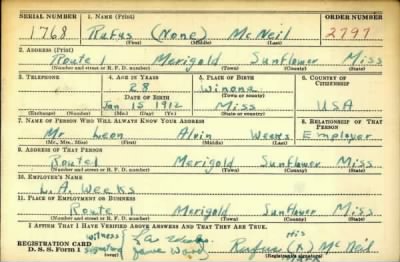 SERIAL NUMBER 1. NAME (Print) ORDER NUMBER
1768 Rufus (None) McNeil 2797
(First) (Middle) (Last)
2. ADDRESS (Print)
Route 1 Merigold Sunflower Miss
(Number and street or R. F. D. number) (Town) (County) (State)
3. TELEPHONE 4. AGE IN YEARS 5. PLACE OF BIRTH 6. COUNTRY OF CITIZENSHIP
28 Winona
DATE OF BIRTH (Town or county)
Jan 15 1912 Miss USA
(Exchange) (Number) (Mo.) (Day) (Yr.) (State or country)
7. NAME OF PERSON WHO WILL ALWAYS KNOW YOUR ADDRESS 8. RELATIONSHIP OF THAT PERSON
Mr Leon Alvin Weeks Employer
(Mr., Mrs., Miss) (First) (Middle) (Last)
9. ADDRESS OF THAT PERSON
Route 1 Merigold Sunflower Miss
(Number and street or R. F. D. number) (Town) (County) (State)
10. EMPLOYER'S NAME
L. A. Weeks
11. PLACE OF EMPLOYMENT OR BUSINESS
Route 1 Merigold Sunflower Miss
(Number and street or R. F. D. number) (Town) (County) (State)
I AFFIRM THAT I HAVE VERIFIED ABOVE ANSWERS AND THAT THEY ARE TRUE.
REGISTRATION CARD witness His
D. S. S. Form 1 signature Rufus (X) McNeil